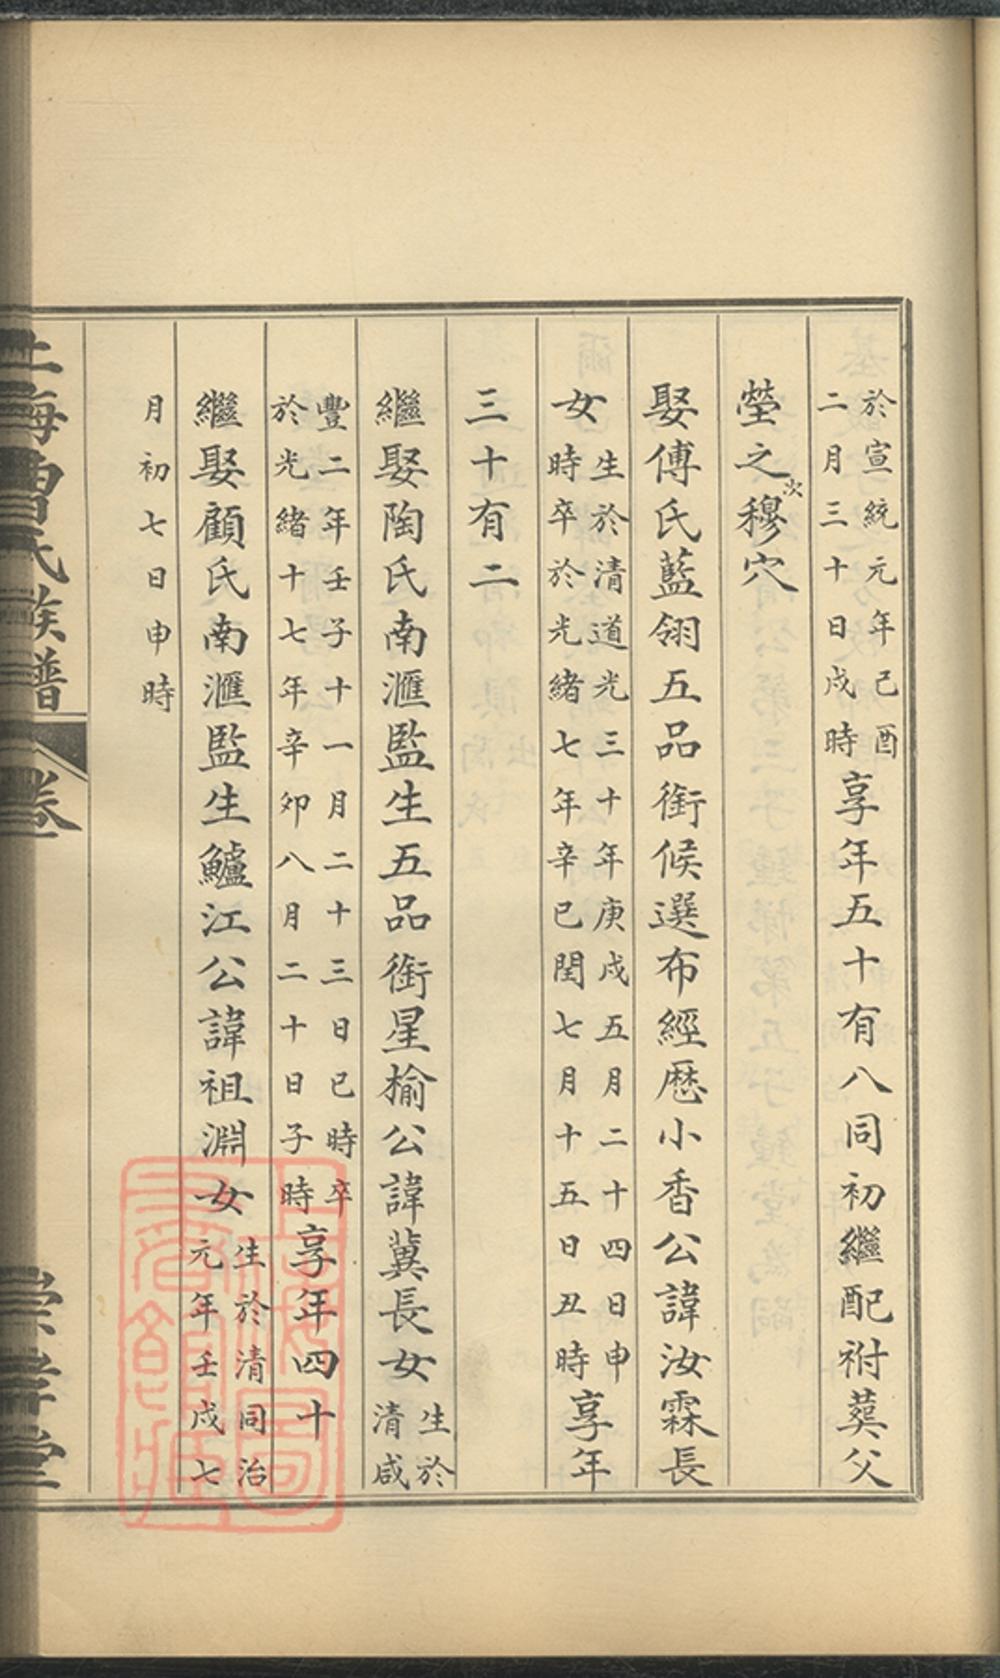 於宣統元年己酉
二月三十日戌時享年五十有八同初繼配祔葬父
塋之次穆穴
娶傅氏藍翎五品銜候選布經歷小香公諱汝霖長
女生於清道光三十年庚戌五月二十四日申
時卒於光緒七年辛巳閏七月十五日丑時享年
三十有二
繼娶陶氏南滙監生五品銜星榆公諱冀長女生於
清咸
豐二年壬子十一月二十三日巳時卒
於光緒十七年辛卯八月二十日子時享年四十
繼娶顧氏南滙監生鱸江公諱祖淵女生於清同治
元年壬戌七
月初七日申時
上海曹氏族譜
卷
崇孝堂
上海圖書館藏